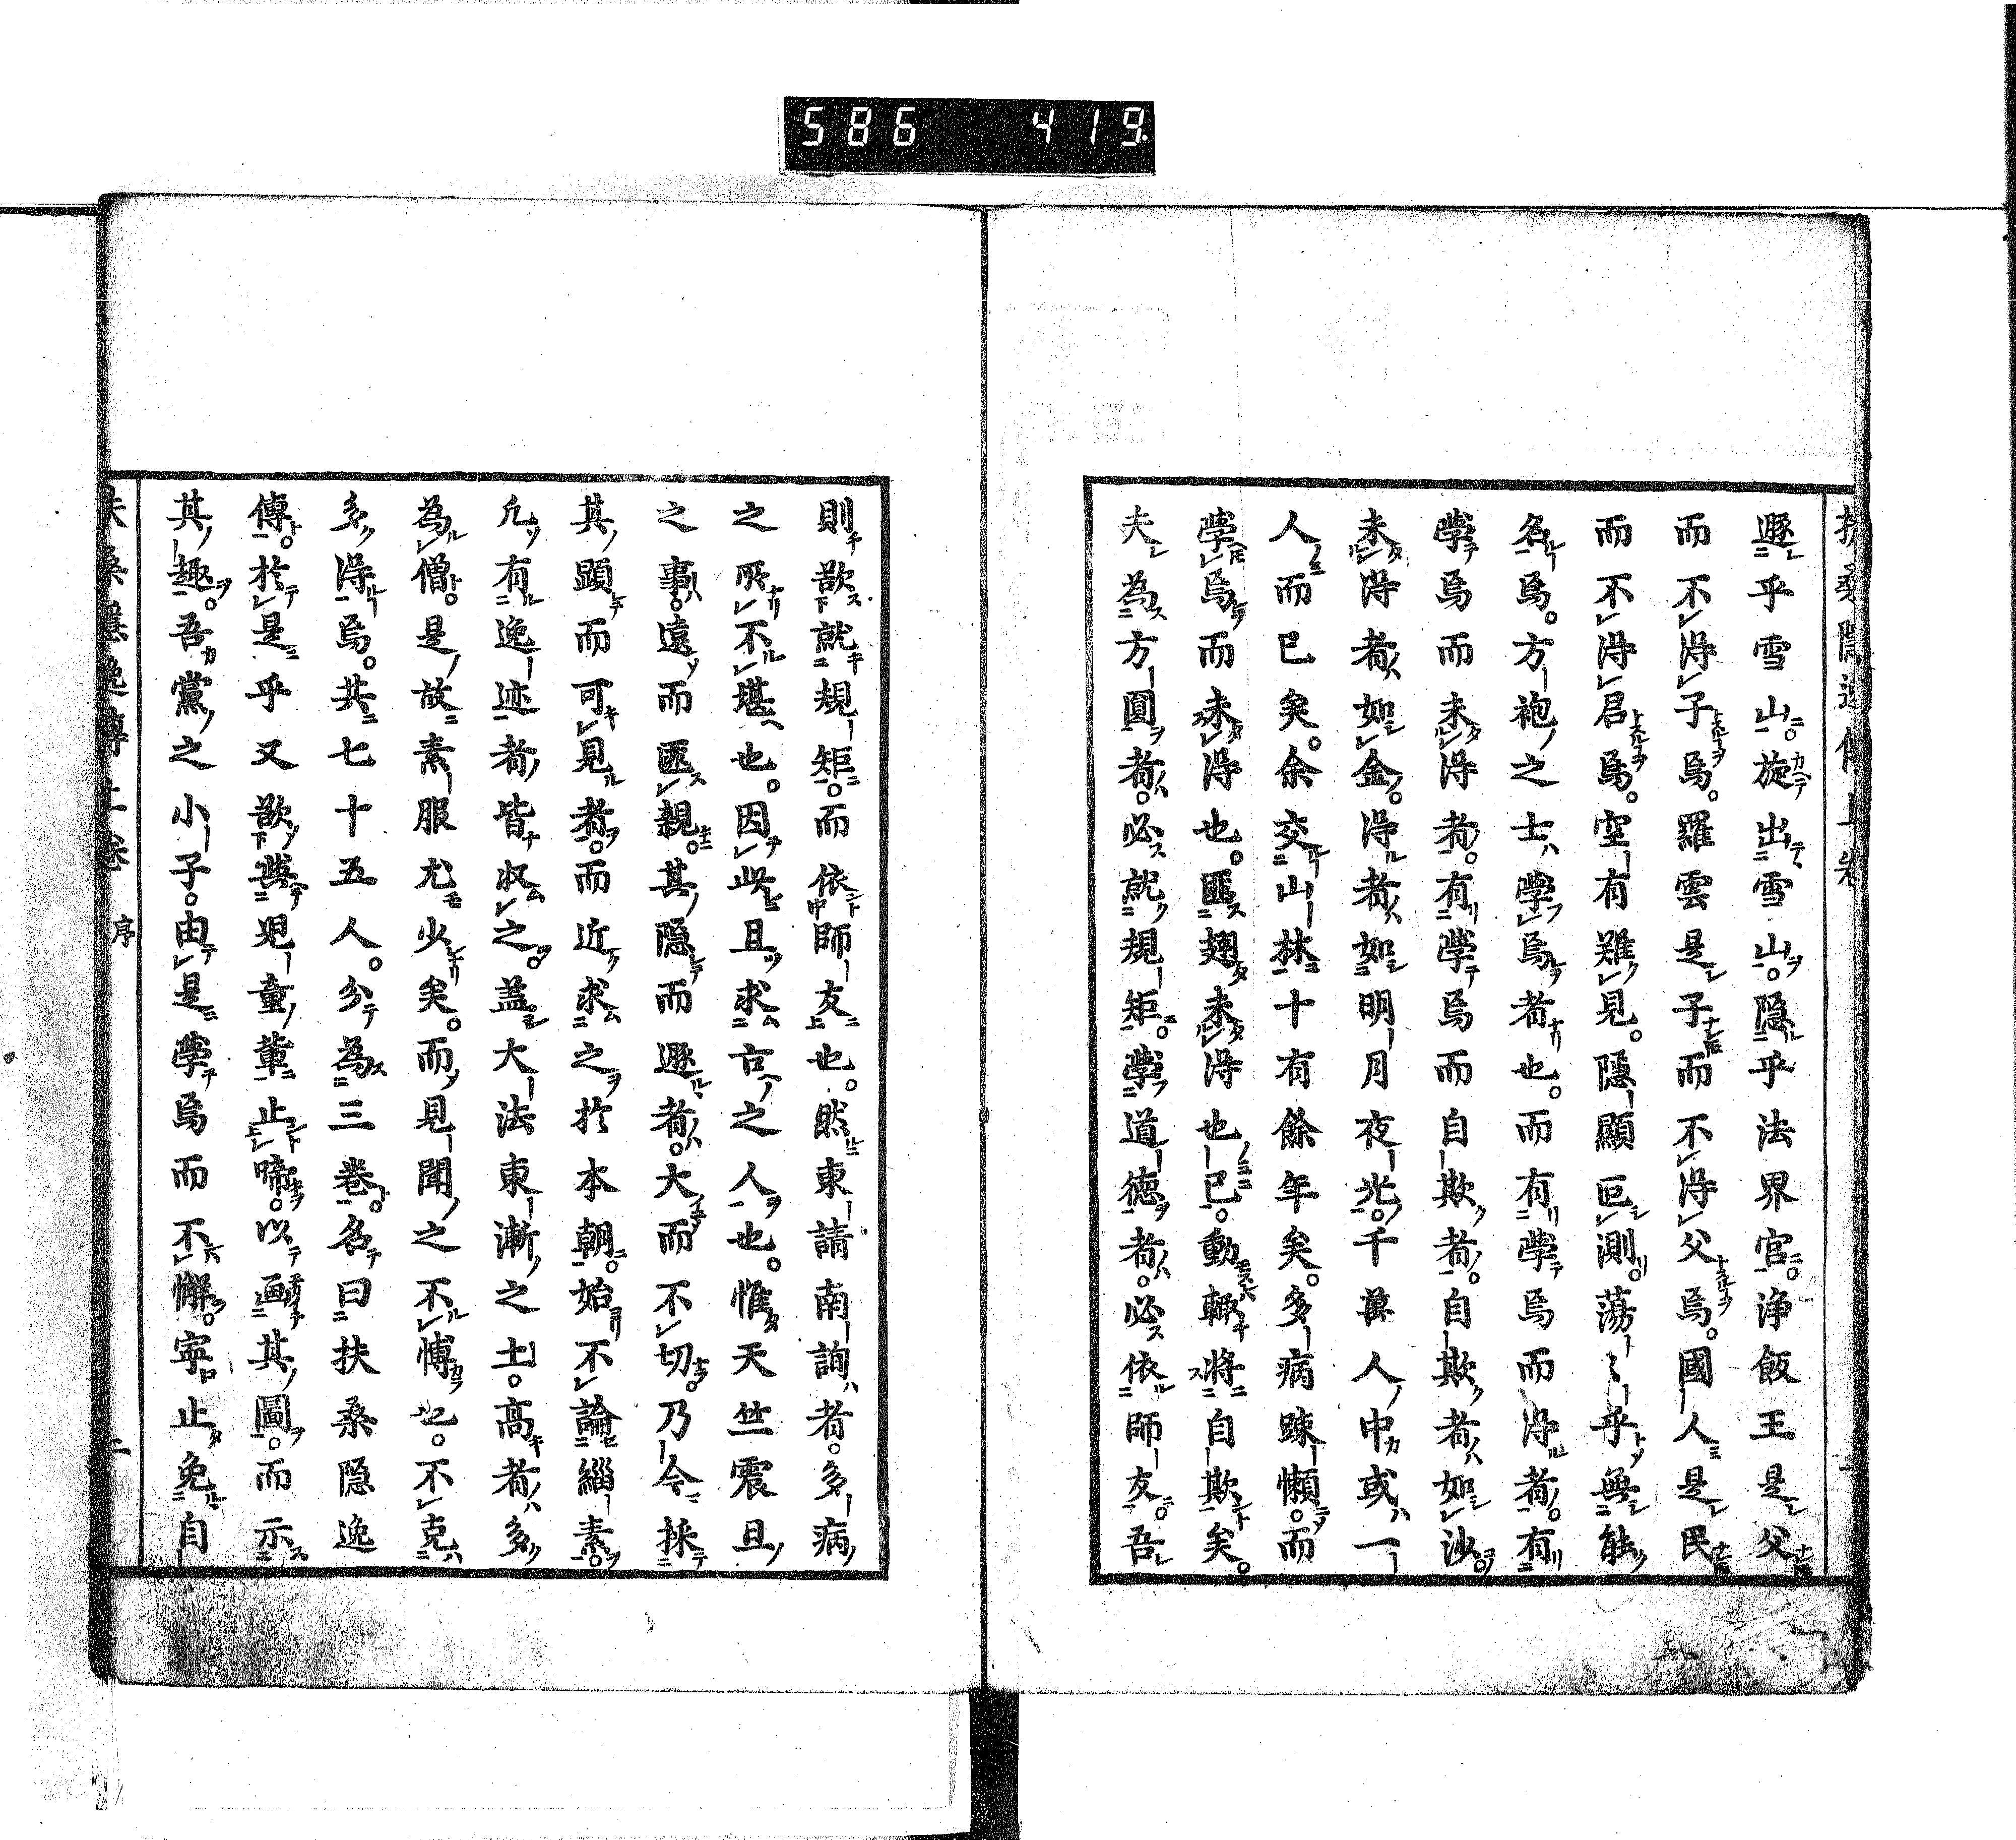 586 419
扶桑隱逸傳上卷
遯乎雪山。旋出雪山。隱乎法界宮。淨飯王是父
而不得子焉。羅雲是子而不得父焉。國人是民
而不得君焉。空有難見。隱顯叵測。蕩〻乎無能
名焉。方袍之士學焉者也。而有學焉而得者。有
學焉而未得者。有學焉而自欺者。自欺者如沙
未得者如金。得者如明月夜光。千萬人中或一
人而已矣。余交山林十有餘年矣。多病踈懶。而
學焉而未得也。匪翅未得也已。動輙將自欺矣。
夫為方圓者。必就規矩。學道德者。必依師友。吾
則欲就規矩。而依師友也。然東請南詢者。多病
之所不堪也。因此且求古之人也。惟天竺震旦
之事。遠而匪親。其隱而遯者。大而不切。乃今採
其顯而可見者。而近求之於本朝。始不論緇素。
凡有逸迹者皆收之。盖大法東漸之士。高者多
為僧。是故素服尤少矣。而見聞之不博也。不克
多得焉。共七十五人。分為三卷。名曰扶桑隱逸
傳。於是乎又欲與兒童輩止啼。以画其圖。而示
其趣。吾黨之小子。由是學焉而不懈。寧止免自
扶桑隱逸傳上卷 序 二